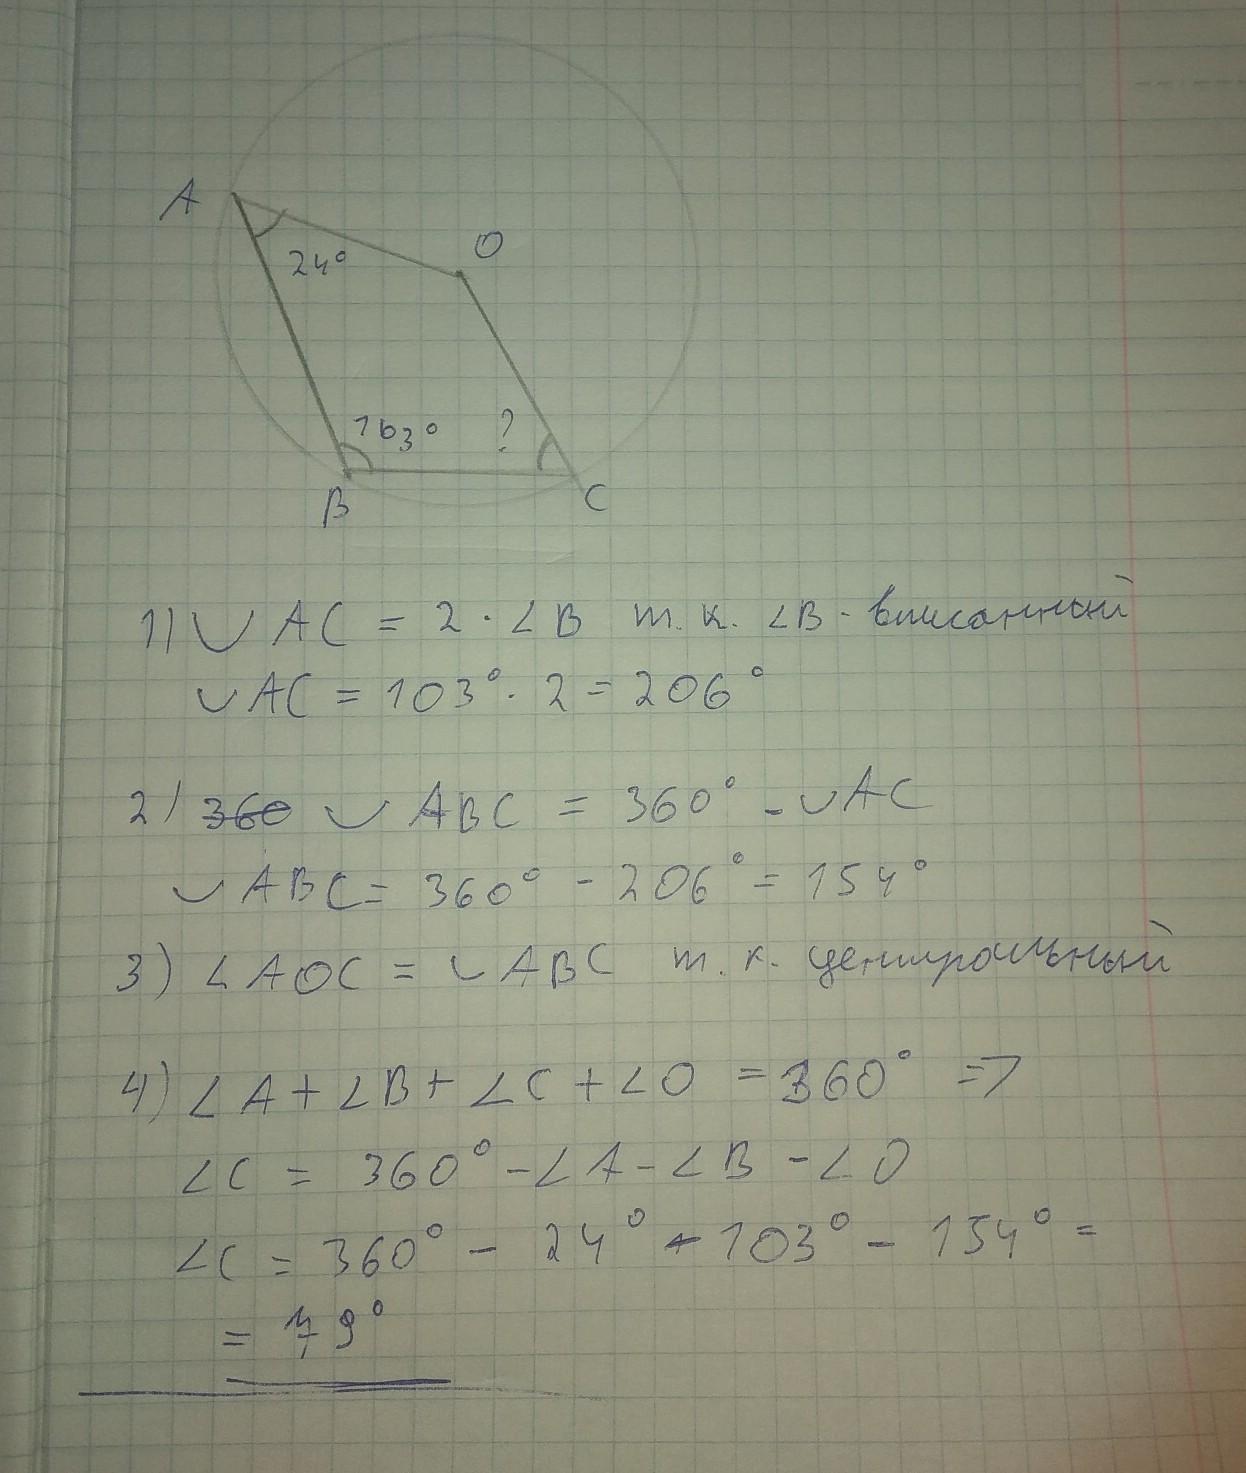 A
O
24°
103° ?
B
C
1) ◡ AC = 2 · ∠B т. к. ∠B - вписанный
◡ AC = 103° · 2 = 206°
2) 360 ◡ ABC = 360° - ◡ AC
◡ ABC = 360° - 206° = 154°
3) ∠AOC = ◡ ABC т. к. центральный
4) ∠A + ∠B + ∠C + ∠O = 360° =>
∠C = 360° - ∠A - ∠B - ∠O
∠C = 360° - 24° - 103° - 154° =
= 79°